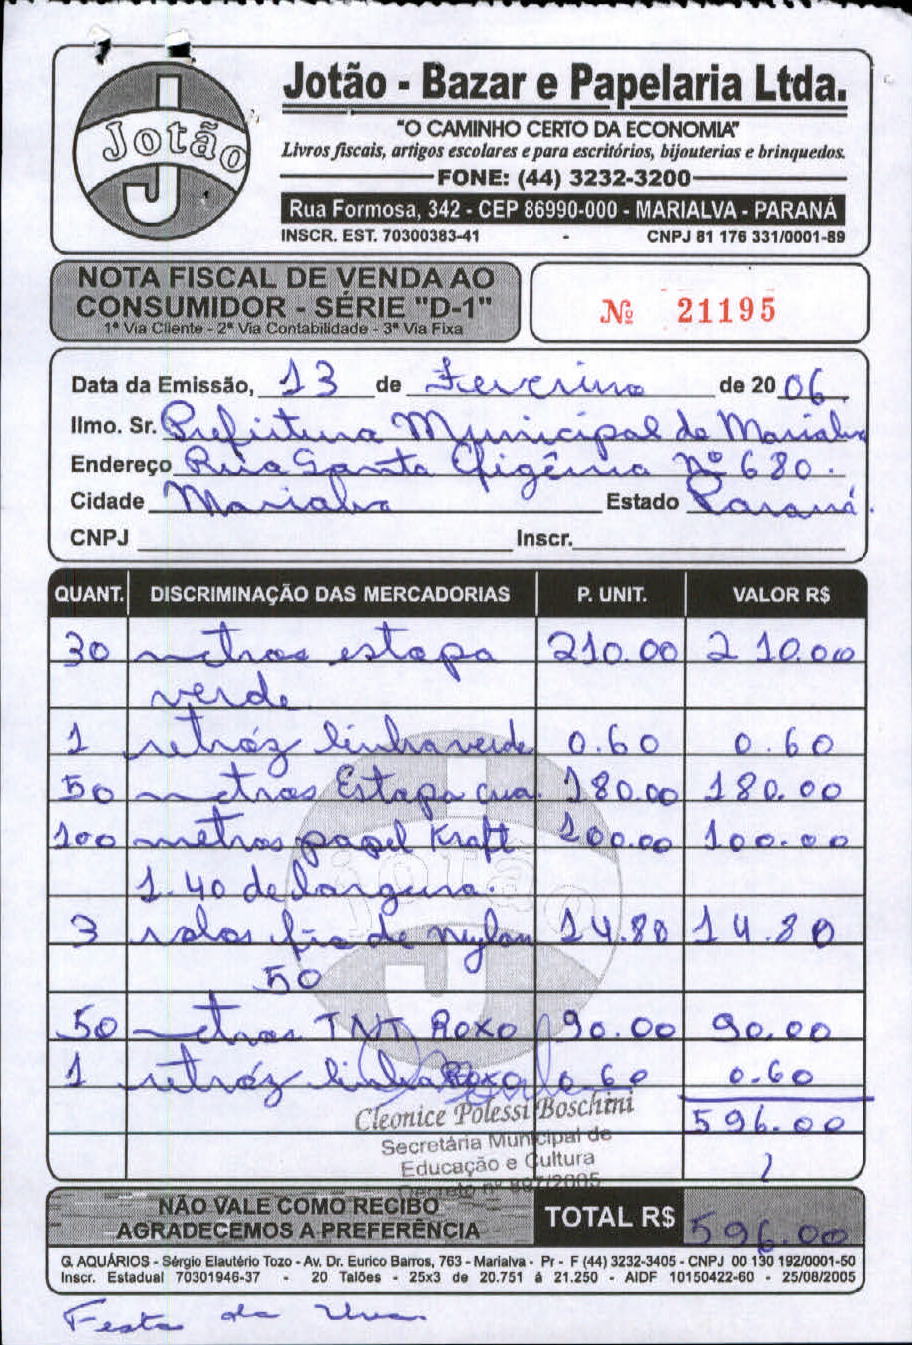 Jotão
Jotão - Bazar e Papelaria Ltda.
"O CAMINHO CERTO DA ECONOMIA"
Livros fiscais, artigos escolares e para escritórios, bijouterias e brinquedos.
FONE: (44) 3232-3200
Rua Formosa, 342 - CEP 86990-000 - MARIALVA - PARANÁ
INSCR. EST. 70300383-41 - CNPJ 81 176 331/0001-89
NOTA FISCAL DE VENDA AO
CONSUMIDOR - SÉRIE "D-1"
1ª Via Cliente - 2ª Via Contabilidade - 3ª Via Fixa
Nº 21195
Data da Emissão, 13 de Fevereiro de 20 06.
Ilmo. Sr. Prefeitura Municipal de Marialva
Endereço Rua Santa Efigênia Nº 680.
Cidade Marialva Estado Paraná.
CNPJ Inscr.
QUANT. DISCRIMINAÇÃO DAS MERCADORIAS P. UNIT. VALOR R$
30 metros estopa 210.00 210.00
verde
1 retróz linha verde 0.60 0.60
50 metros Estopa crua. 180.00 180.00
100 metros papel Kraft 100.00 100.00
1.40 de largura.
3 rolos fio de nylon 14.80 14.80
50
50 metros TNT Roxo 90.00 90.00
1 retróz linha Roxo 0.60 0.60
Cleonice Polessi Boschini 596.00
Secretária Municipal de
Educação e Cultura
Decreto nº 897/2005
NÃO VALE COMO RECIBO
AGRADECEMOS A PREFERÊNCIA
TOTAL R$ 596.00
G. AQUÁRIOS - Sérgio Elautério Tozo - Av. Dr. Eurico Barros, 763 - Marialva - Pr - F (44) 3232-3405 - CNPJ 00 130 192/0001-50
Inscr. Estadual 70301946-37 - 20 Talões - 25x3 de 20.751 á 21.250 - AIDF 10150422-60 - 25/08/2005
Festa da Uva.